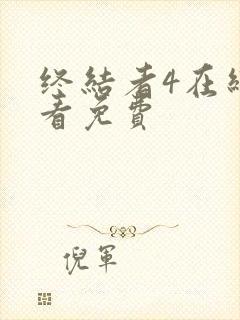 终结者4在线
看免费
倪军